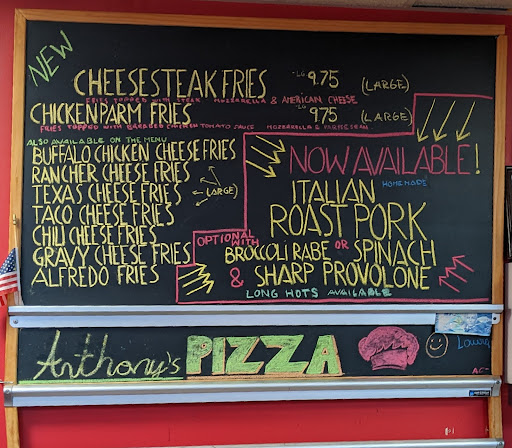 NEW
CHEESESTEAK FRIES LG 9.75 (LARGE)
FRIES TOPPED WITH STEAK MOZZARELLA & AMERICAN CHEESE
CHICKEN PARM FRIES LG 9.75 (LARGE)
FRIES TOPPED WITH BREADED CHICKEN TOMATO SAUCE MOZZARELLA & PARMESEAN
ALSO AVAILABLE ON THE MENU
BUFFALO CHICKEN CHEESE FRIES
RANCHER CHEESE FRIES
TEXAS CHEESE FRIES (LARGE)
TACO CHEESE FRIES
CHILI CHEESE FRIES
GRAVY CHEESE FRIES
ALFREDO FRIES
NOW AVAILABLE!
HOMEMADE
ITALIAN
ROAST PORK
OPTIONAL
WITH
BROCCOLI RABE OR SPINACH
& SHARP PROVOLONE
LONG HOTS AVAILABLE
Anthony's PIZZA